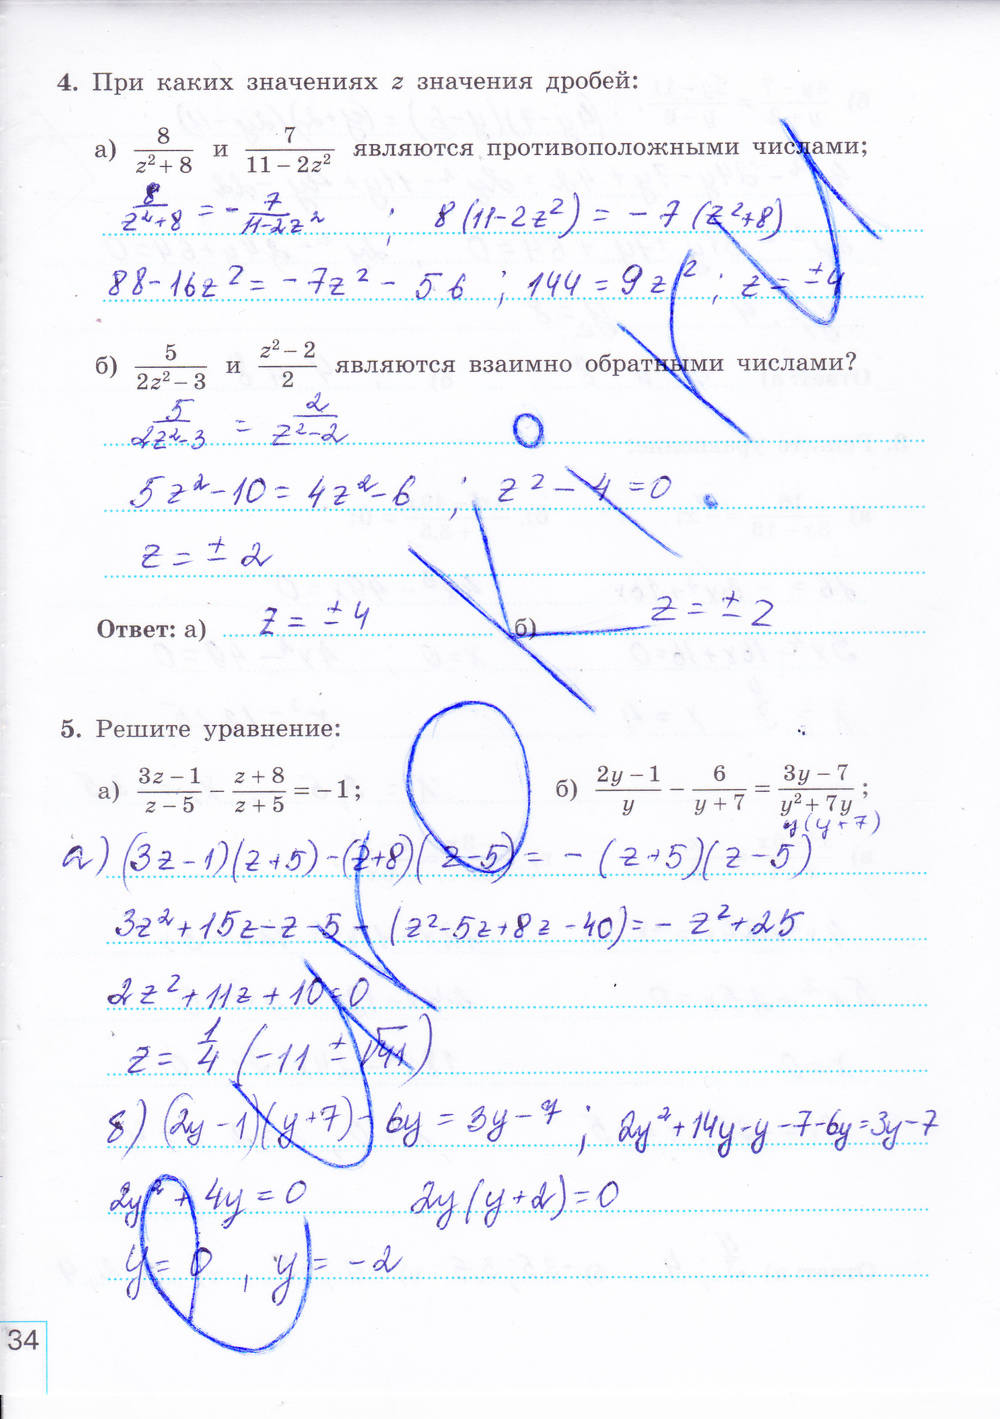 4. При каких значениях z значения дробей:
а) 8/(z² + 8) и 7/(11 − 2z²) являются противоположными числами;
8/(z²+8) = − 7/(11−2z²) ; 8(11−2z²) = −7(z²+8)
88−16z² = −7z² − 56 ; 144 = 9z² ; z = ±4
б) 5/(2z² − 3) и (z² − 2)/2 являются взаимно обратными числами?
5/(2z²−3) = 2/(z²−2)
5z²−10 = 4z²−6 ; z² − 4 = 0
z = ± 2
Ответ: а) z = ± 4 б) z = ± 2
5. Решите уравнение:
а) (3z − 1)/(z − 5) − (z + 8)/(z + 5) = −1; б) (2y − 1)/y − 6/(y + 7) = (3y − 7)/(y² + 7y);
y(y+7)
а) (3z−1)(z+5)−(z+8)(z−5) = −(z+5)(z−5)
3z²+15z−z−5−(z²−5z+8z−40) = −z²+25
2z²+11z+10=0
z = 1/4 (−11 ± √41)
б) (2y−1)(y+7)−6y = 3y−7 ; 2y²+14y−y−7−6y=3y−7
2y²+4y=0 2y(y+2)=0
y = 0 , y = −2
34